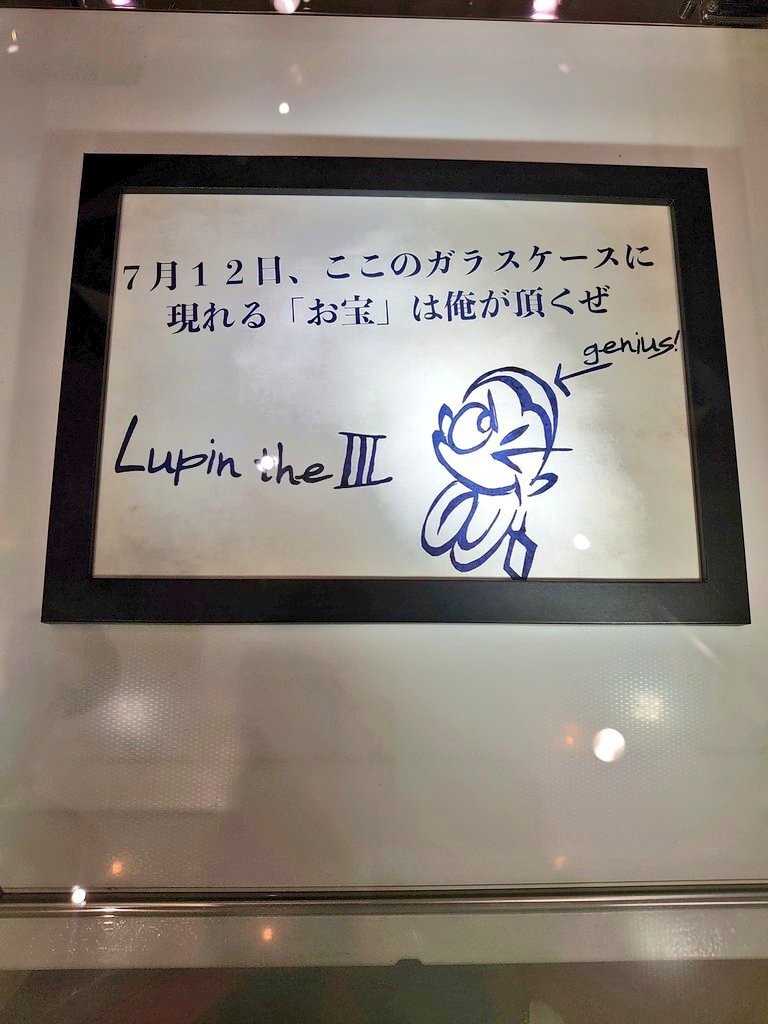 ７月１２日、ここのガラスケースに
現れる「お宝」は俺が頂くぜ
genius!
Lupin the III